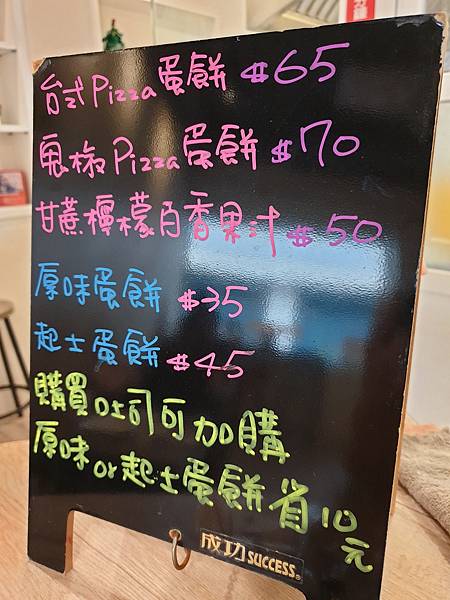 台式Pizza蛋餅 $65
鬼椒Pizza蛋餅 $70
甘蔗檸檬百香果汁 $50
原味蛋餅 $35
起士蛋餅 $45
購買吐司可加購
原味or起士蛋餅省10元
成功 SUCCESS®